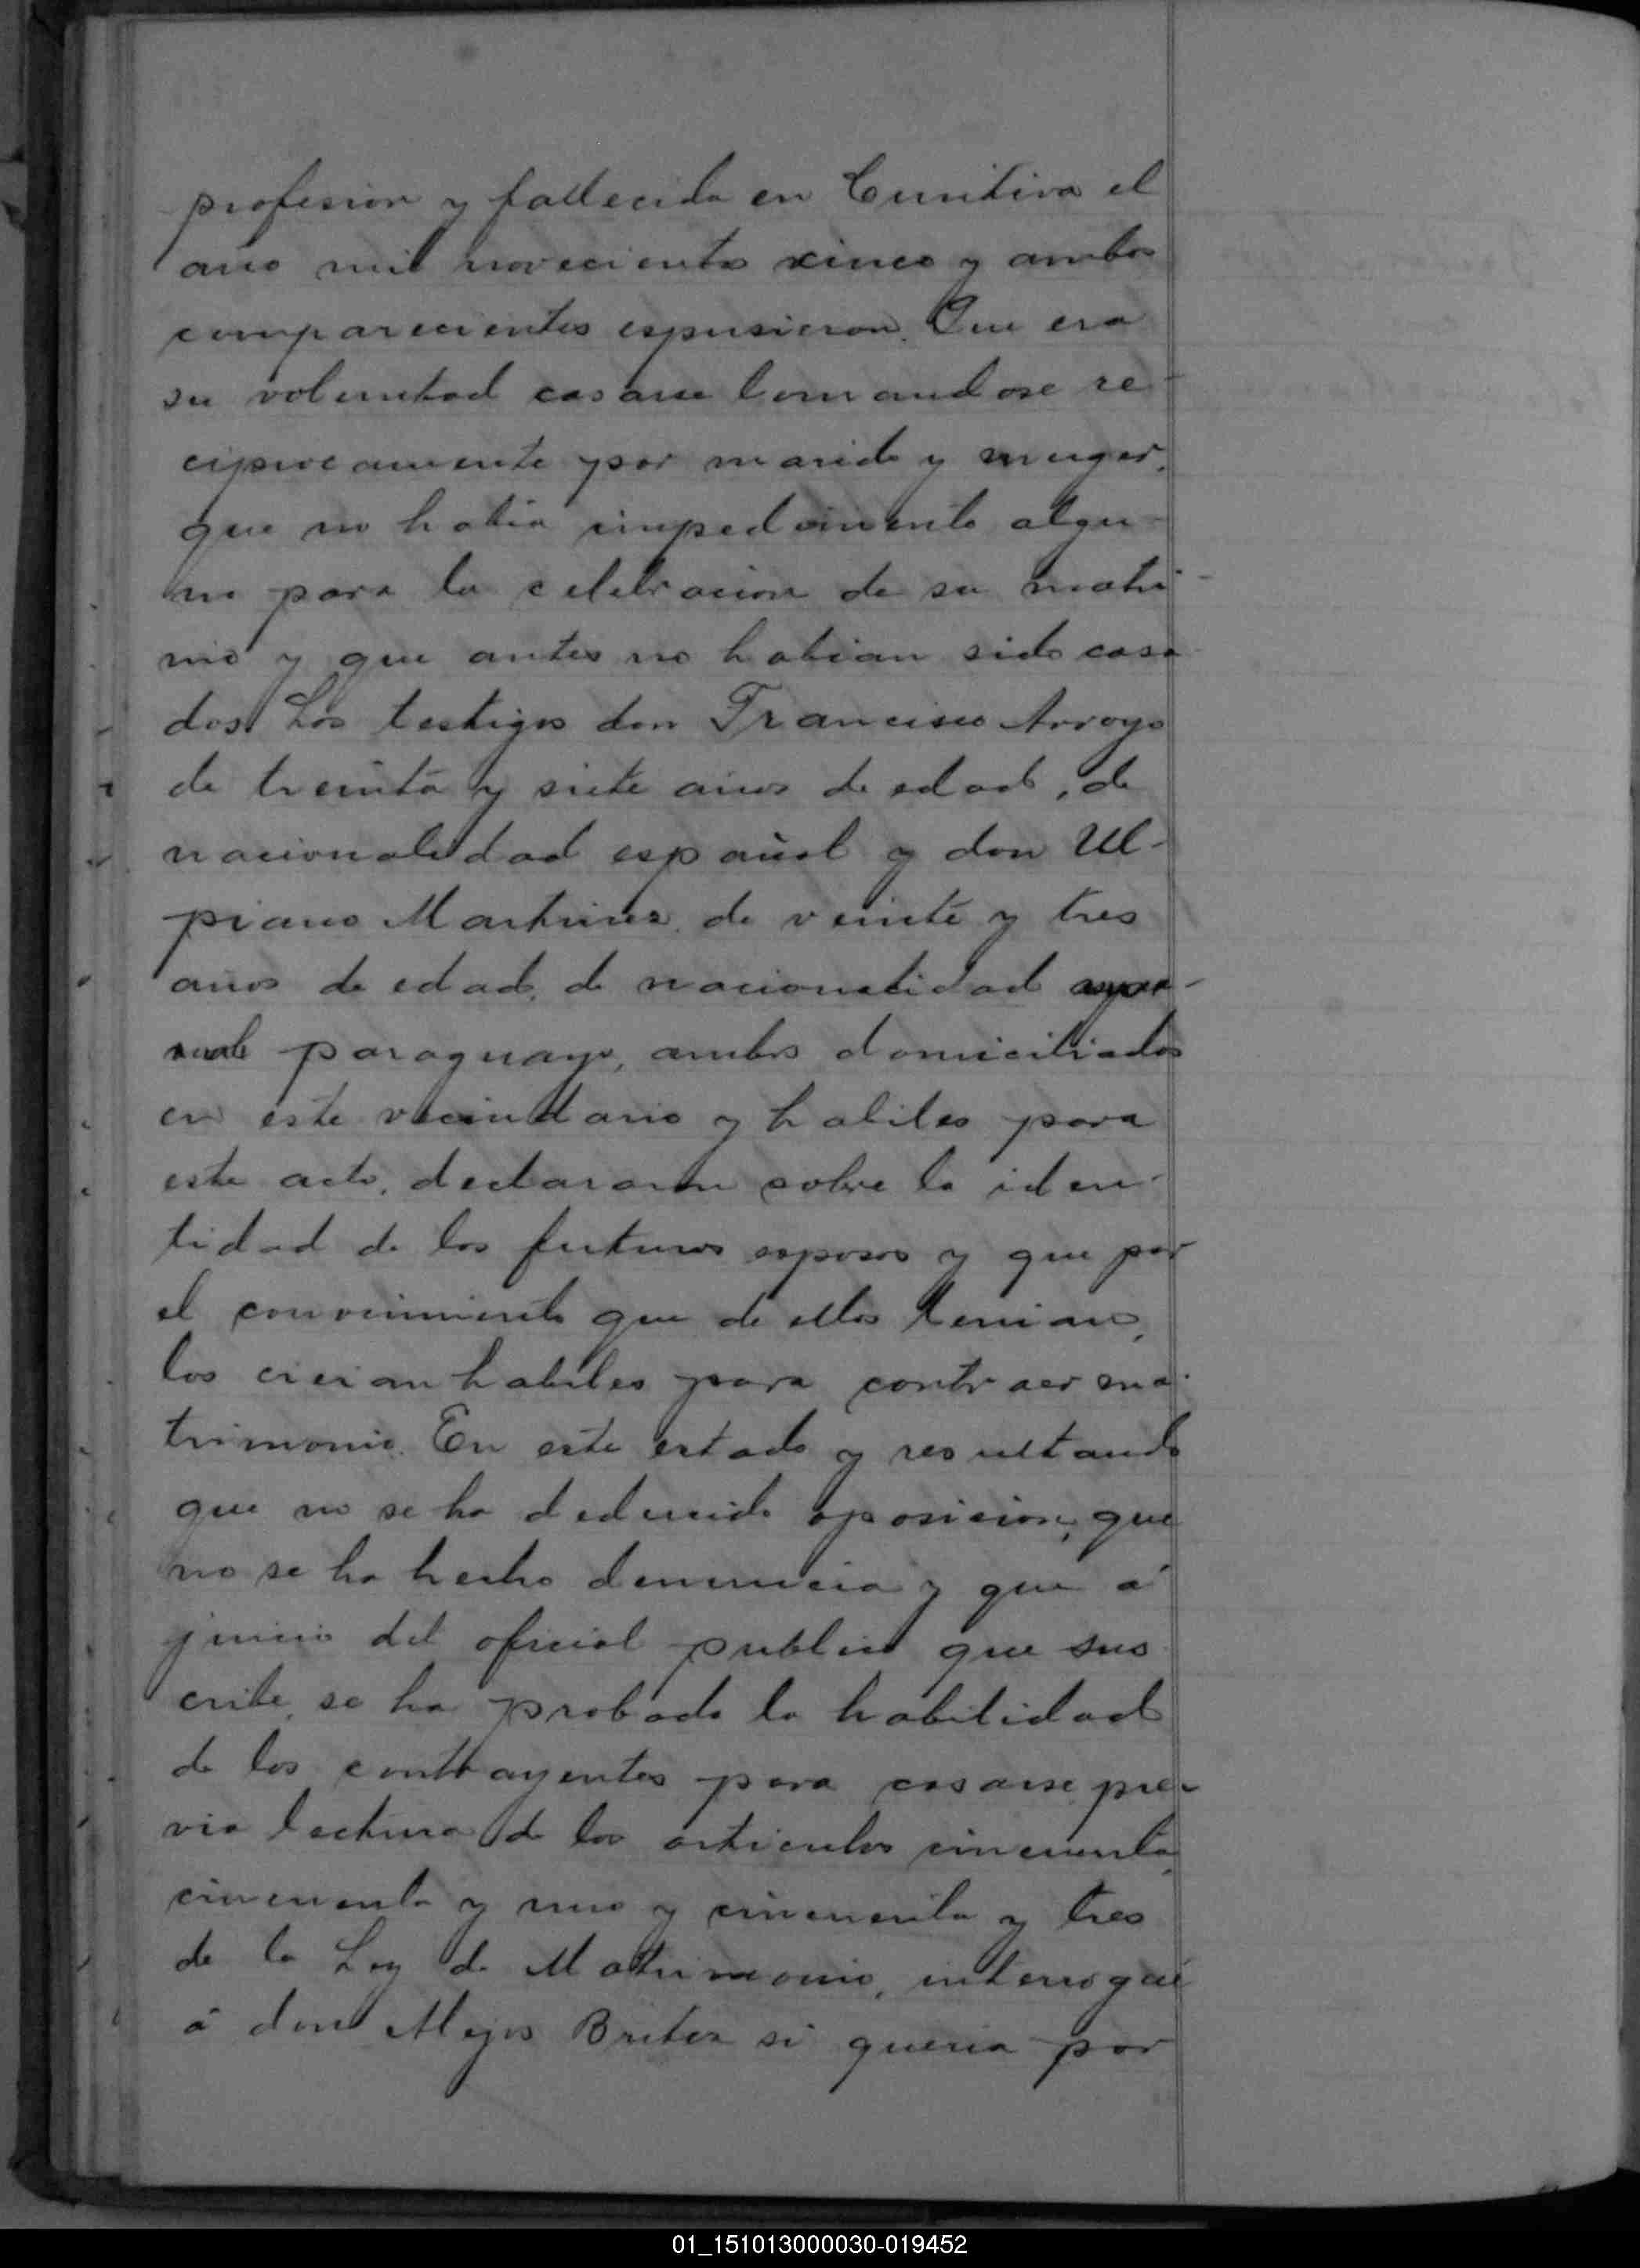 profesion y fallecida en Curitiva el
año mil novecientos cinco y ambos
comparecientes espusieron. Que era
su voluntad casarse tomandose re-
ciprocamente por marido y muger,
que no habia impedimento algu-
no para la celebracion de su matri-
nio y que antes no habian sido casa
dos. Los testigos don Francisco Arroyo
de treinta y siete años de edad, de
nacionalidad español y don Ul-
piano Martinez, de veinte y tres
años de edad, de nacionalidad
paraguayo, ambos domiciliados
en este vecindario y habiles para
este acto, declararon sobre la iden-
tidad de los futuros esposos y que por
el conocimiento que de ellos tenian,
los creian habiles para contraer ma-
trimonio. En este estado y resultando
que no se ha deducido oposicion, que
no se ha hecho denuncia y que á
juicio del oficial publico que sus
cribe, se ha probado la habilidad
de los contrayentes para casarse, pre-
via lectura de los articulos cincuenta,
cincuenta y uno y cincuenta y tres
de la Ley de Matrimonio, interrogué
á don Alejos Britez si queria por
01_151013000030-019452